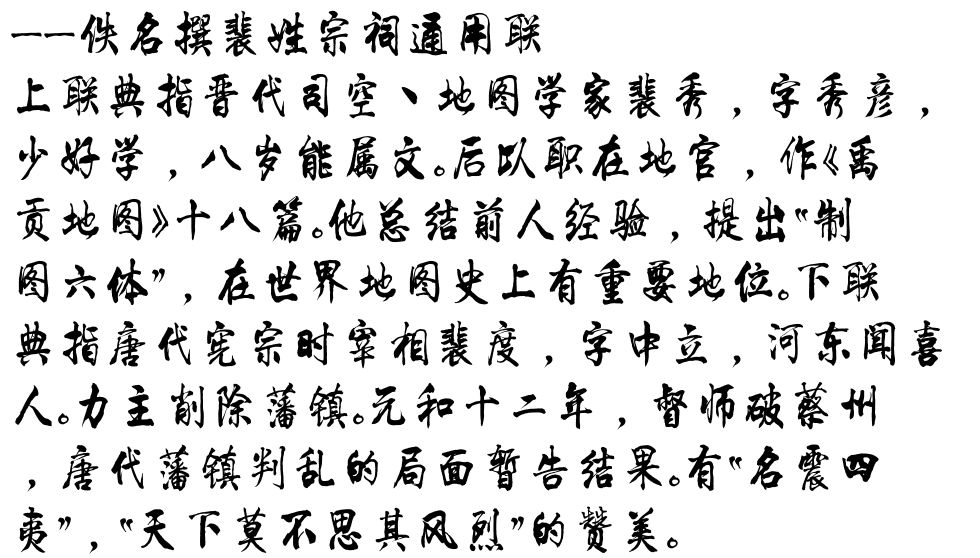 ——佚名撰裴姓宗祠通用联
上联典指晋代司空、地图学家裴秀，字秀彦，
少好学，八岁能属文。后以职在地官，作《禹
贡地图》十八篇。他总结前人经验，提出“制
图六体”，在世界地图史上有重要地位。下联
典指唐代宪宗时宰相裴度，字中立，河东闻喜
人。力主削除藩镇。元和十二年，督师破蔡州
，唐代藩镇判乱的局面暂告结果。有“名震四
夷”，“天下莫不思其风烈”的赞美。